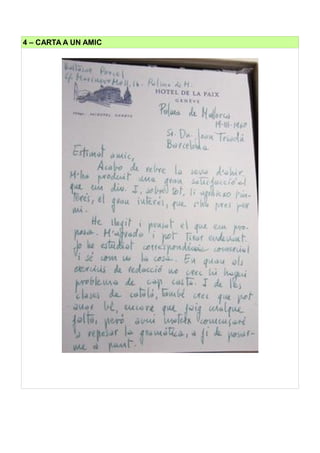 4 – CARTA A UN AMIC
Baltasar Porcel
Palma de M.
HOTEL DE LA PAIX
GENÈVE
Palma de Mallorca
19-III-1960
Sr. Dn. Joan Triadú
Barcelona
Estimat amic,
Acabo de rebre la seva d'ahir.
M'ha produït una gran satisfacció el
que em diu. I, sobretot, li agraeixo
el gran interès, que s'ha pres per
mi.
He llegit i pensat el que em pro-
posa. M'agrada i pot tirar endavant.
Jo he estudiat correspondència comercial
i sé com va la cosa. En quan als
exercicis de redacció no crec hi hagui
problema de cap casta. I de les
classes de català, també crec que pot
anar bé, encara que faig malque
falta, però avui mateix començaré
a repasar la gramàtica, a fi de posar-
me a punt.